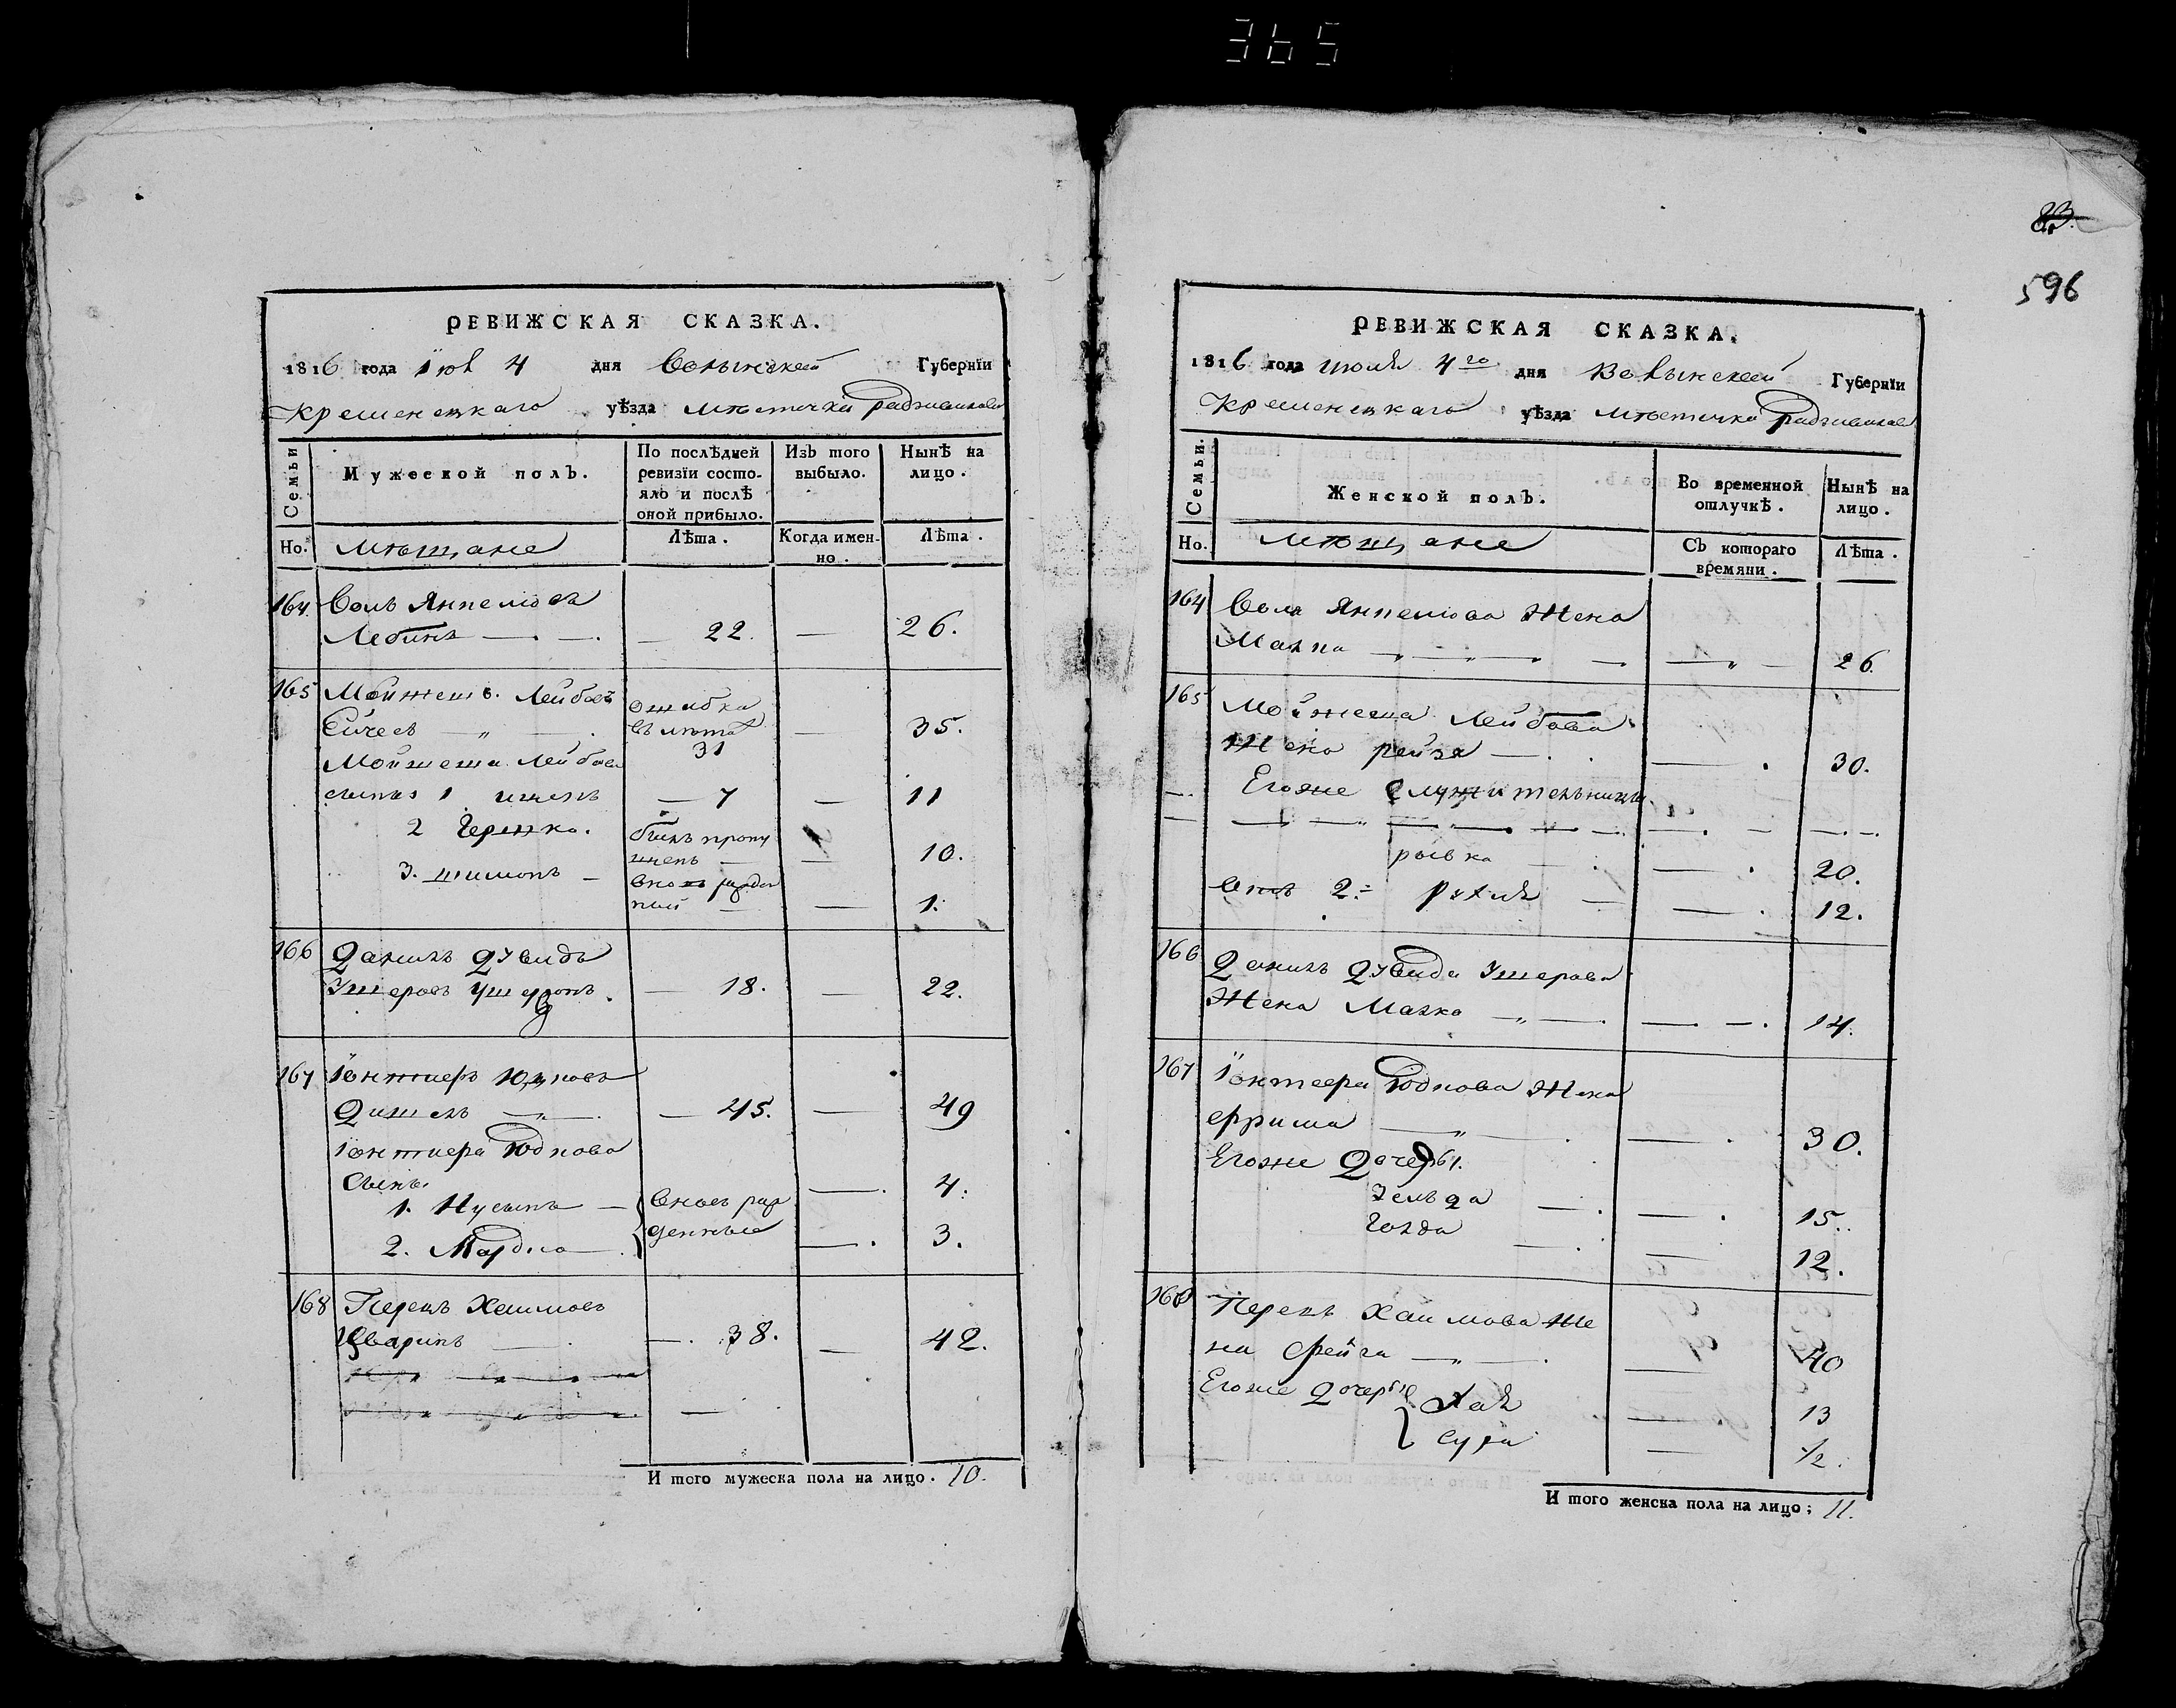 365
83.
596
РЕВИЖСКАЯ СКАЗКА.
1816 года Iюл 4 дня Волынской Губернїи
Кременецкаго уѣзда мѣстечка Радзивилова
Семьи
Мужеской полъ.
По послѣдней ревизїи состояло и послѣ оной прибыло.
Изъ того выбыло.
Нынѣ на лицо.
Но.
мѣщане
Лѣта.
Когда именно.
Лѣта.
164
Волъ
Лебинъ — 22. — 26.
165 Мойжешъ Лейбовъ ошибка
въ лѣта 31 — 35.
Мойжеша Лейбова
сынъя 1 — 7 — 11
2 Гершко. былъ пропу
щенъ — 10.
3. шимонъ — вновь рожден
ный — 1.
166 Данилъ Давидъ
Ушеровъ — 18. — 22.
167 Iонтиеръ Юдковъ
Дишель — 45. — 49
Iонтиера Юдкова
Сынъ.
1. Нусынъ — вновь рож — 4.
2. Мардко денные — 3.
168 Перецъ Хаимовъ
Цваринъ — 38. — 42.
И того мужеска пола на лицо. 10.
РЕВИЖСКАЯ СКАЗКА.
1816 года июля 4го дня Волынской Губернїи
Кременецкаго уѣзда мѣстечка Радзивилова
Семьи.
Женской полъ.
Во временной отлучкѣ.
Нынѣ на лицо.
Но.
мѣщане
Съ котораго времяни.
Лѣта.
164 Вола Жена
Малка — 26.
165 Мойжеша Лейбова
Жена рейзя — 30.
Егоже служительницы
рывка — 20.
2. Рухля — 12.
166 Данилъ Давида Ушерова
Жена Малка — 14.
167 Iонтеера Юдкова Жена
еррима — 30.
Егоже Дочеры.
Зельда — 15.
Голда — 12.
168 Перецъ Хаимова Же
на Фейга — 40
Егоже Дочеры Хая — 13
Сура — 1/2.
И того женска пола на лицо; 11.